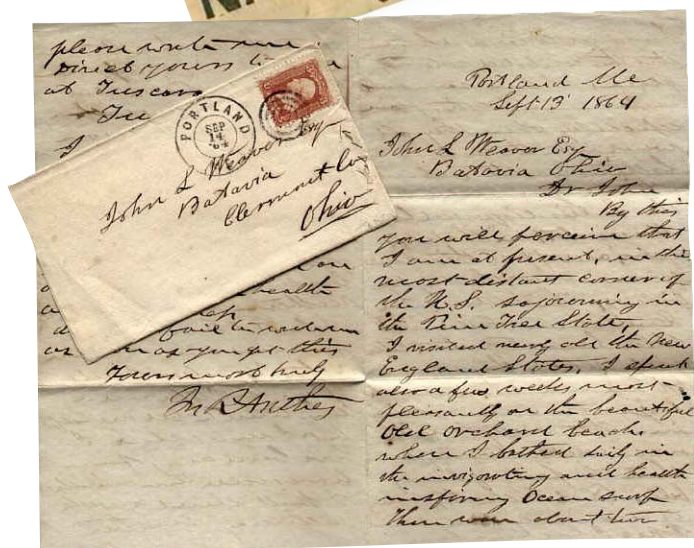 please write me
Direct yours to
at Tuscar
Tus
I
PORTLAND
SEP
14
'64
John L Weaver Esq
Batavia
Clermont Co
Ohio
health
fail to
as as you get this
Yours most truly
Portland Me
Sept 13 1864
John L Weaver Esq
Batavia Ohio
Dr John
By this
you will perceive that
I am at present, in this
most distant corner of
the U.S. sojourning in
the Pine Tree State,
I visited many of the New
England States, I spent
also a few weeks most
pleasantly on the beautiful
Old Orchard beach
where I bathed daily in
the invigorating and health
inspiring Ocean surf
There were about two